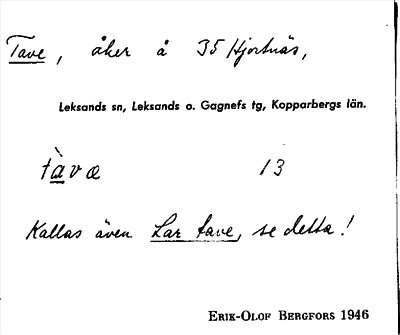 Tave, åker å 35 Hjortnäs,
Leksands sn, Leksands o. Gagnefs tg, Kopparbergs län.
tàvæ 13
Kallas även Lar tave, se detta!
ERIK-OLOF BERGFORS 1946